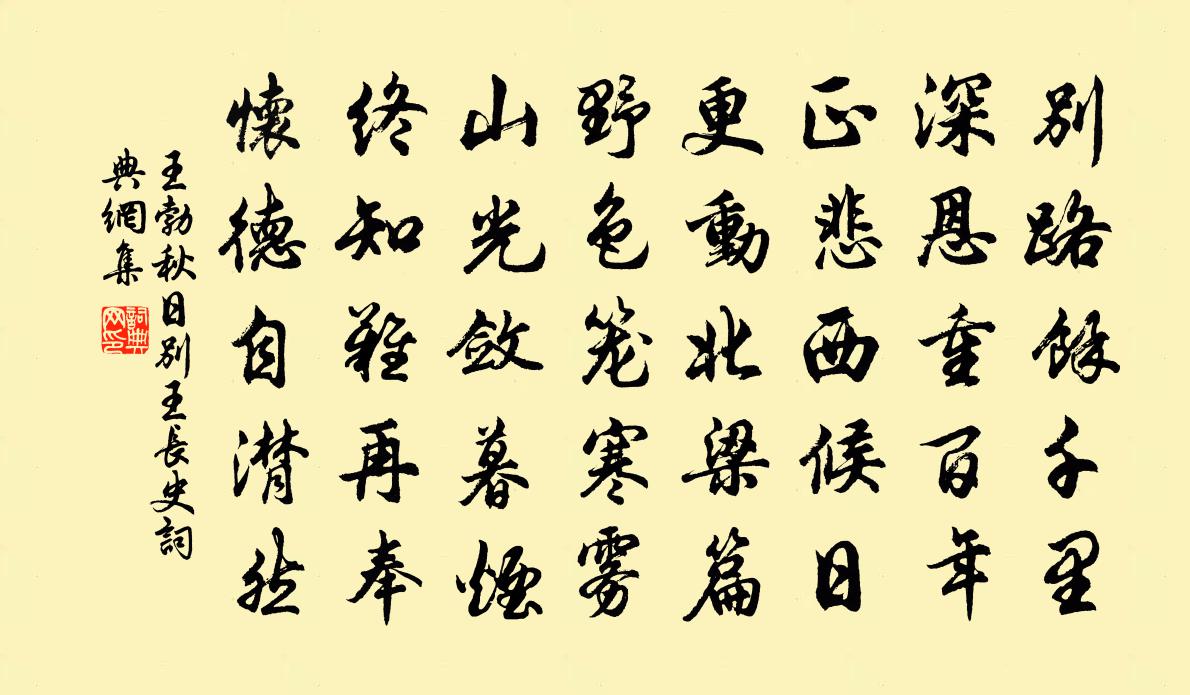 別路餘千里
深恩重百年
正悲西候日
更動北梁篇
野色籠寒霧
山光斂暮煙
終知難再奉
懷德自潸然
王勃秋日別王長史詞
典網集
詞典
网印